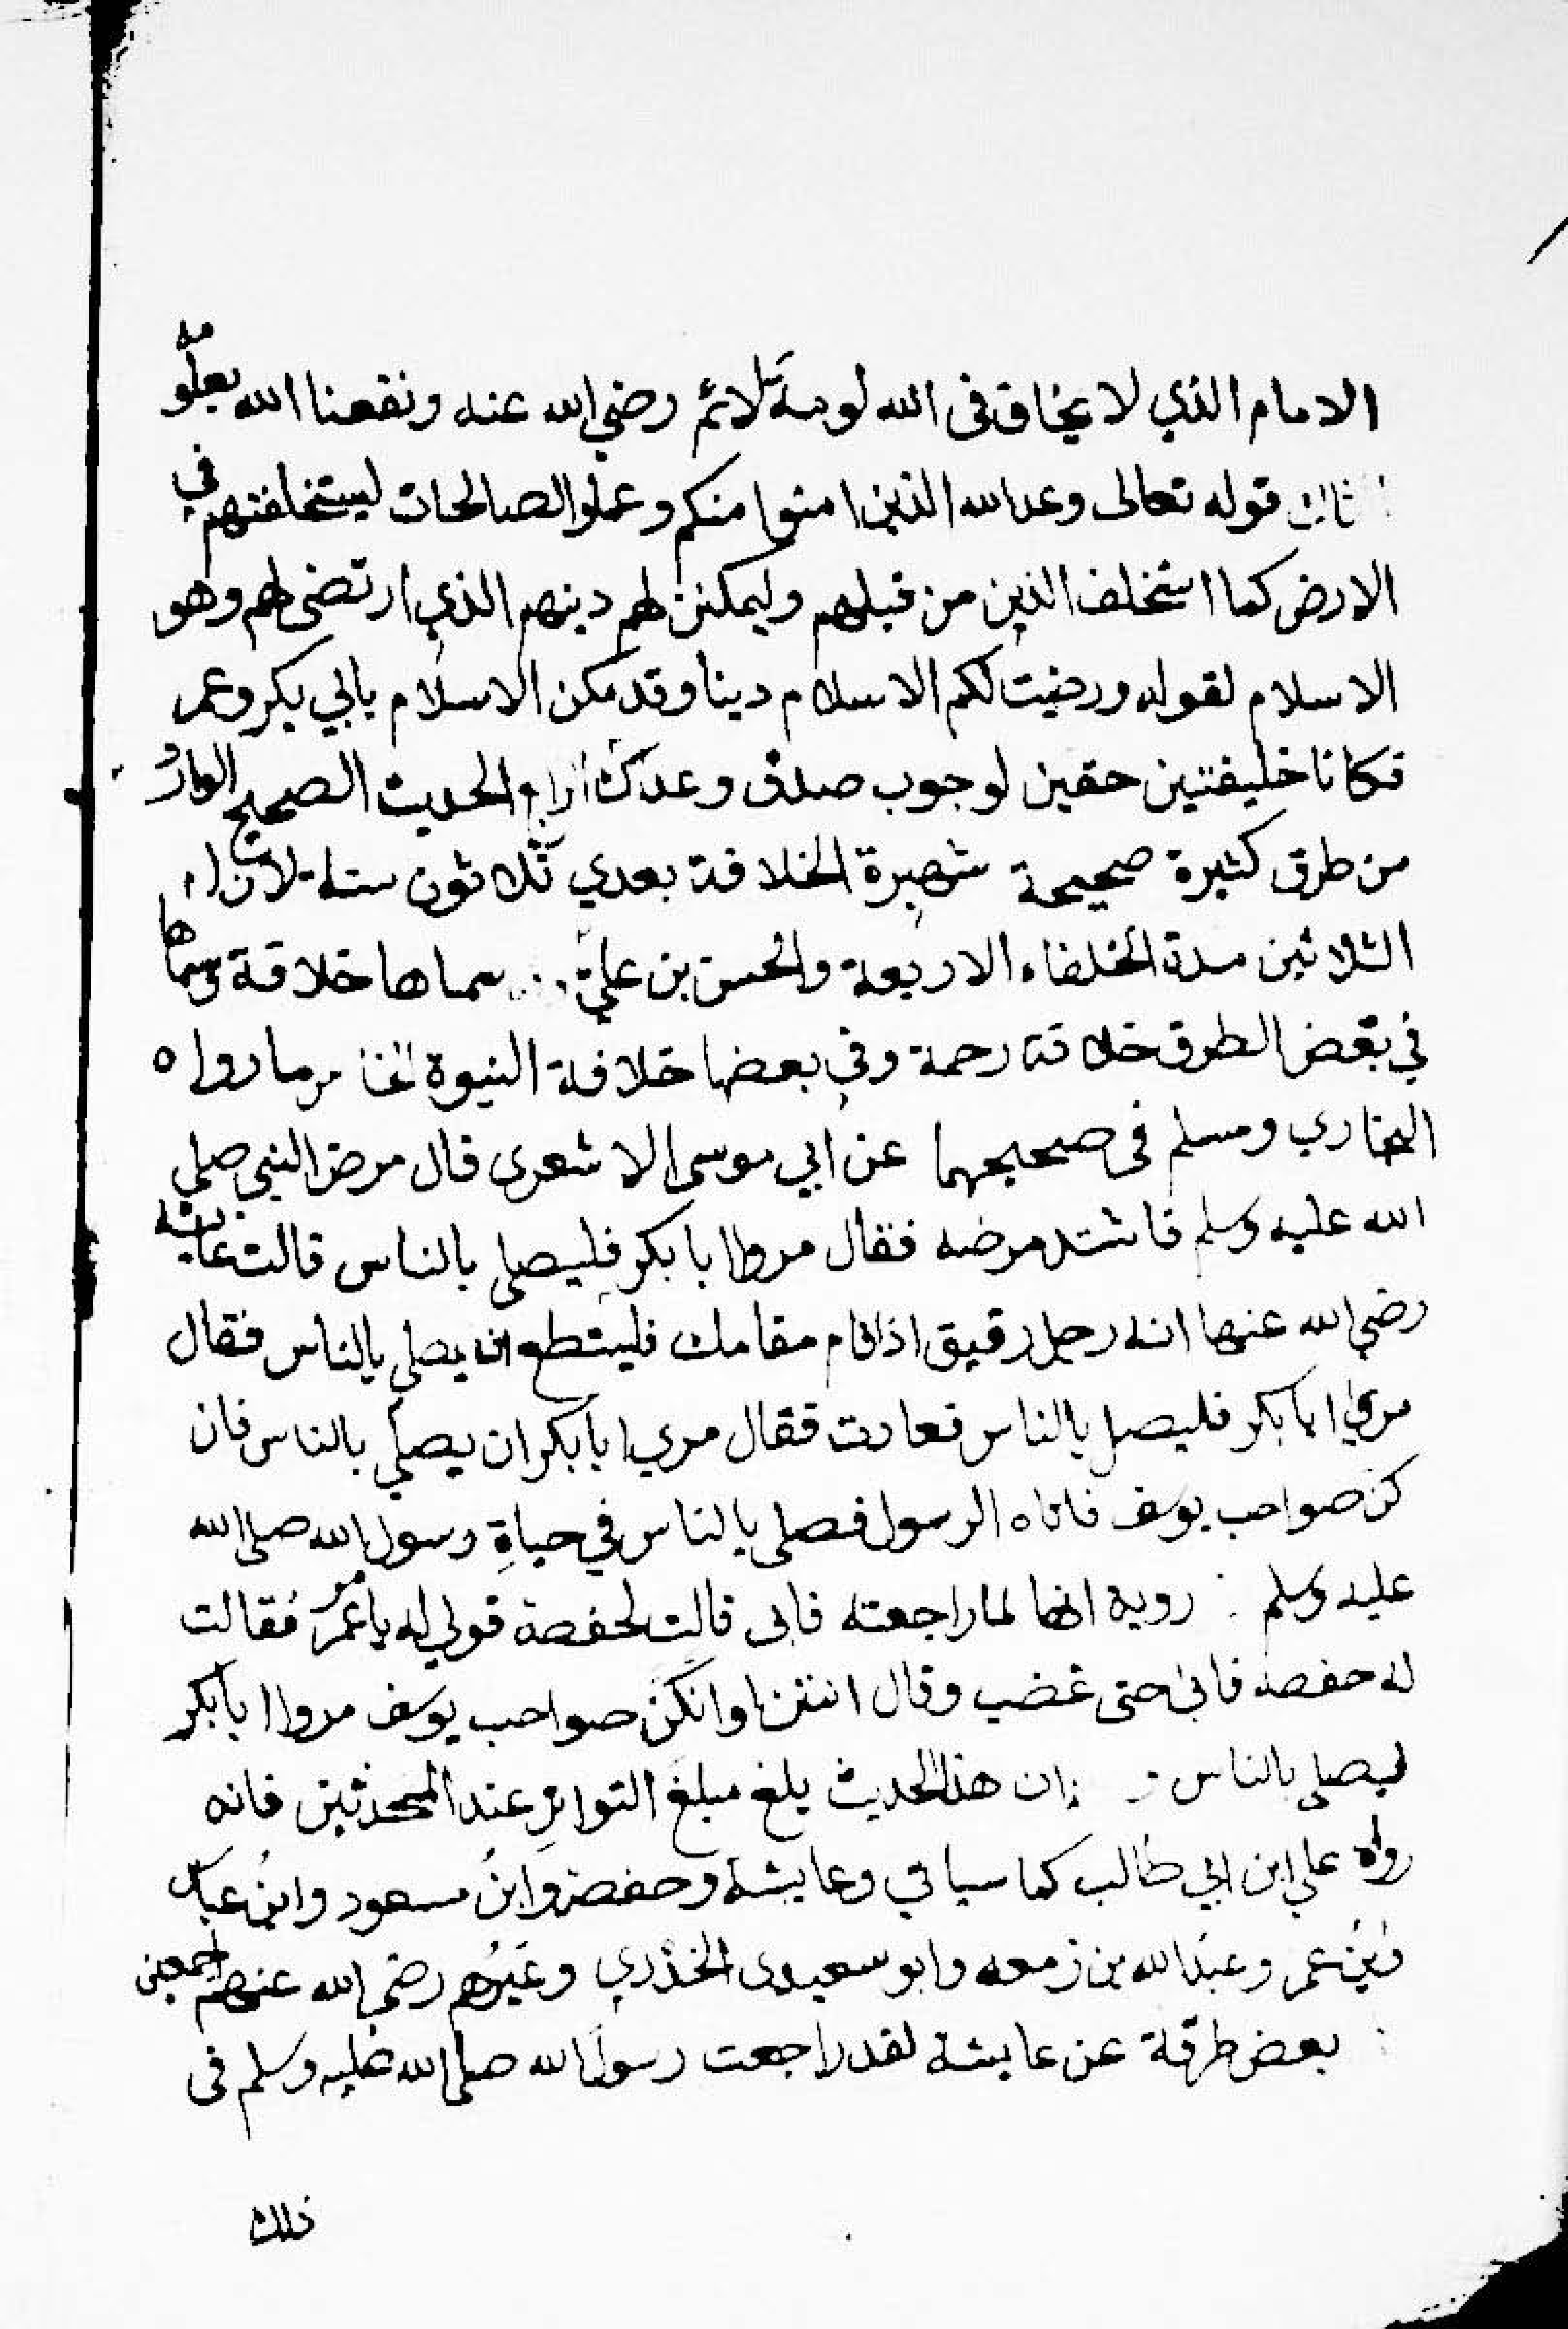 الامام الذي لا يخاف فى الله لومة لائم رضي الله عنه ونفعنا الله بعلومه
ثالث قوله تعالى وعد الله الذين امنوا منكم وعملوا الصالحات ليستخلفنهم في
الارض كما استخلف الذين من قبلهم وليمكنن لهم دينهم الذي ارتضى لهم وهو
الاسلام لقوله ورضيت لكم الاسلام دينا وقد مكن الاسلام بابي بكر وعمر
فكانا خليفتين حقين لوجوب صدق وعد الحديث الصحيح الوارد
من طرق كثيرة صحيحة شهيرة الخلافة بعدي ثلاثون سنة لان
الثلاثين مدة الخلفاء الاربعة والحسن بن علي سماها خلافة وسماها
في بعض الطرق خلافة رحمة وفي بعضها خلافة النبوة ما رواه
البخاري ومسلم فى صحيحيهما عن ابي موسى الاشعرى قال مرض النبي صلى
الله عليه وسلم فاشتد مرضه فقال مروا ابا بكر فليصلي بالناس قالت عايشة
رضي الله عنها انه رجل رقيق اذا قام مقامك فليستطع ان يصلي بالناس فقال
مري ابا بكر فليصل بالناس فعادت فقال مري ابا بكر ان يصلي بالناس فان
كن صواحب يوسف فاتاه الرسول فصلى بالناس في حياة رسول الله صلى الله
عليه وسلم روية انها لما راجعته فابى قالت لحفصة قولي له يامر عمر فقالت
له حفصة فابى حتى غضب وقال انتن او انكن صواحب يوسف مروا ابا بكر
ليصلي بالناس ان هذا الحديث بلغ مبلغ التواتر عند المحدثين فانه
رواه علي ابن ابي طالب كما سياتي وعايشة وحفصة وابن مسعود وابن عباس
وبن عمر وعبد الله بن زمعه وابو سعيدى الخذري وغيرهم رضي الله عنهم اجمعين
بعض طرقة عن عايشة لقد راجعت رسول الله صلى الله عليه وسلم فى
ذلك